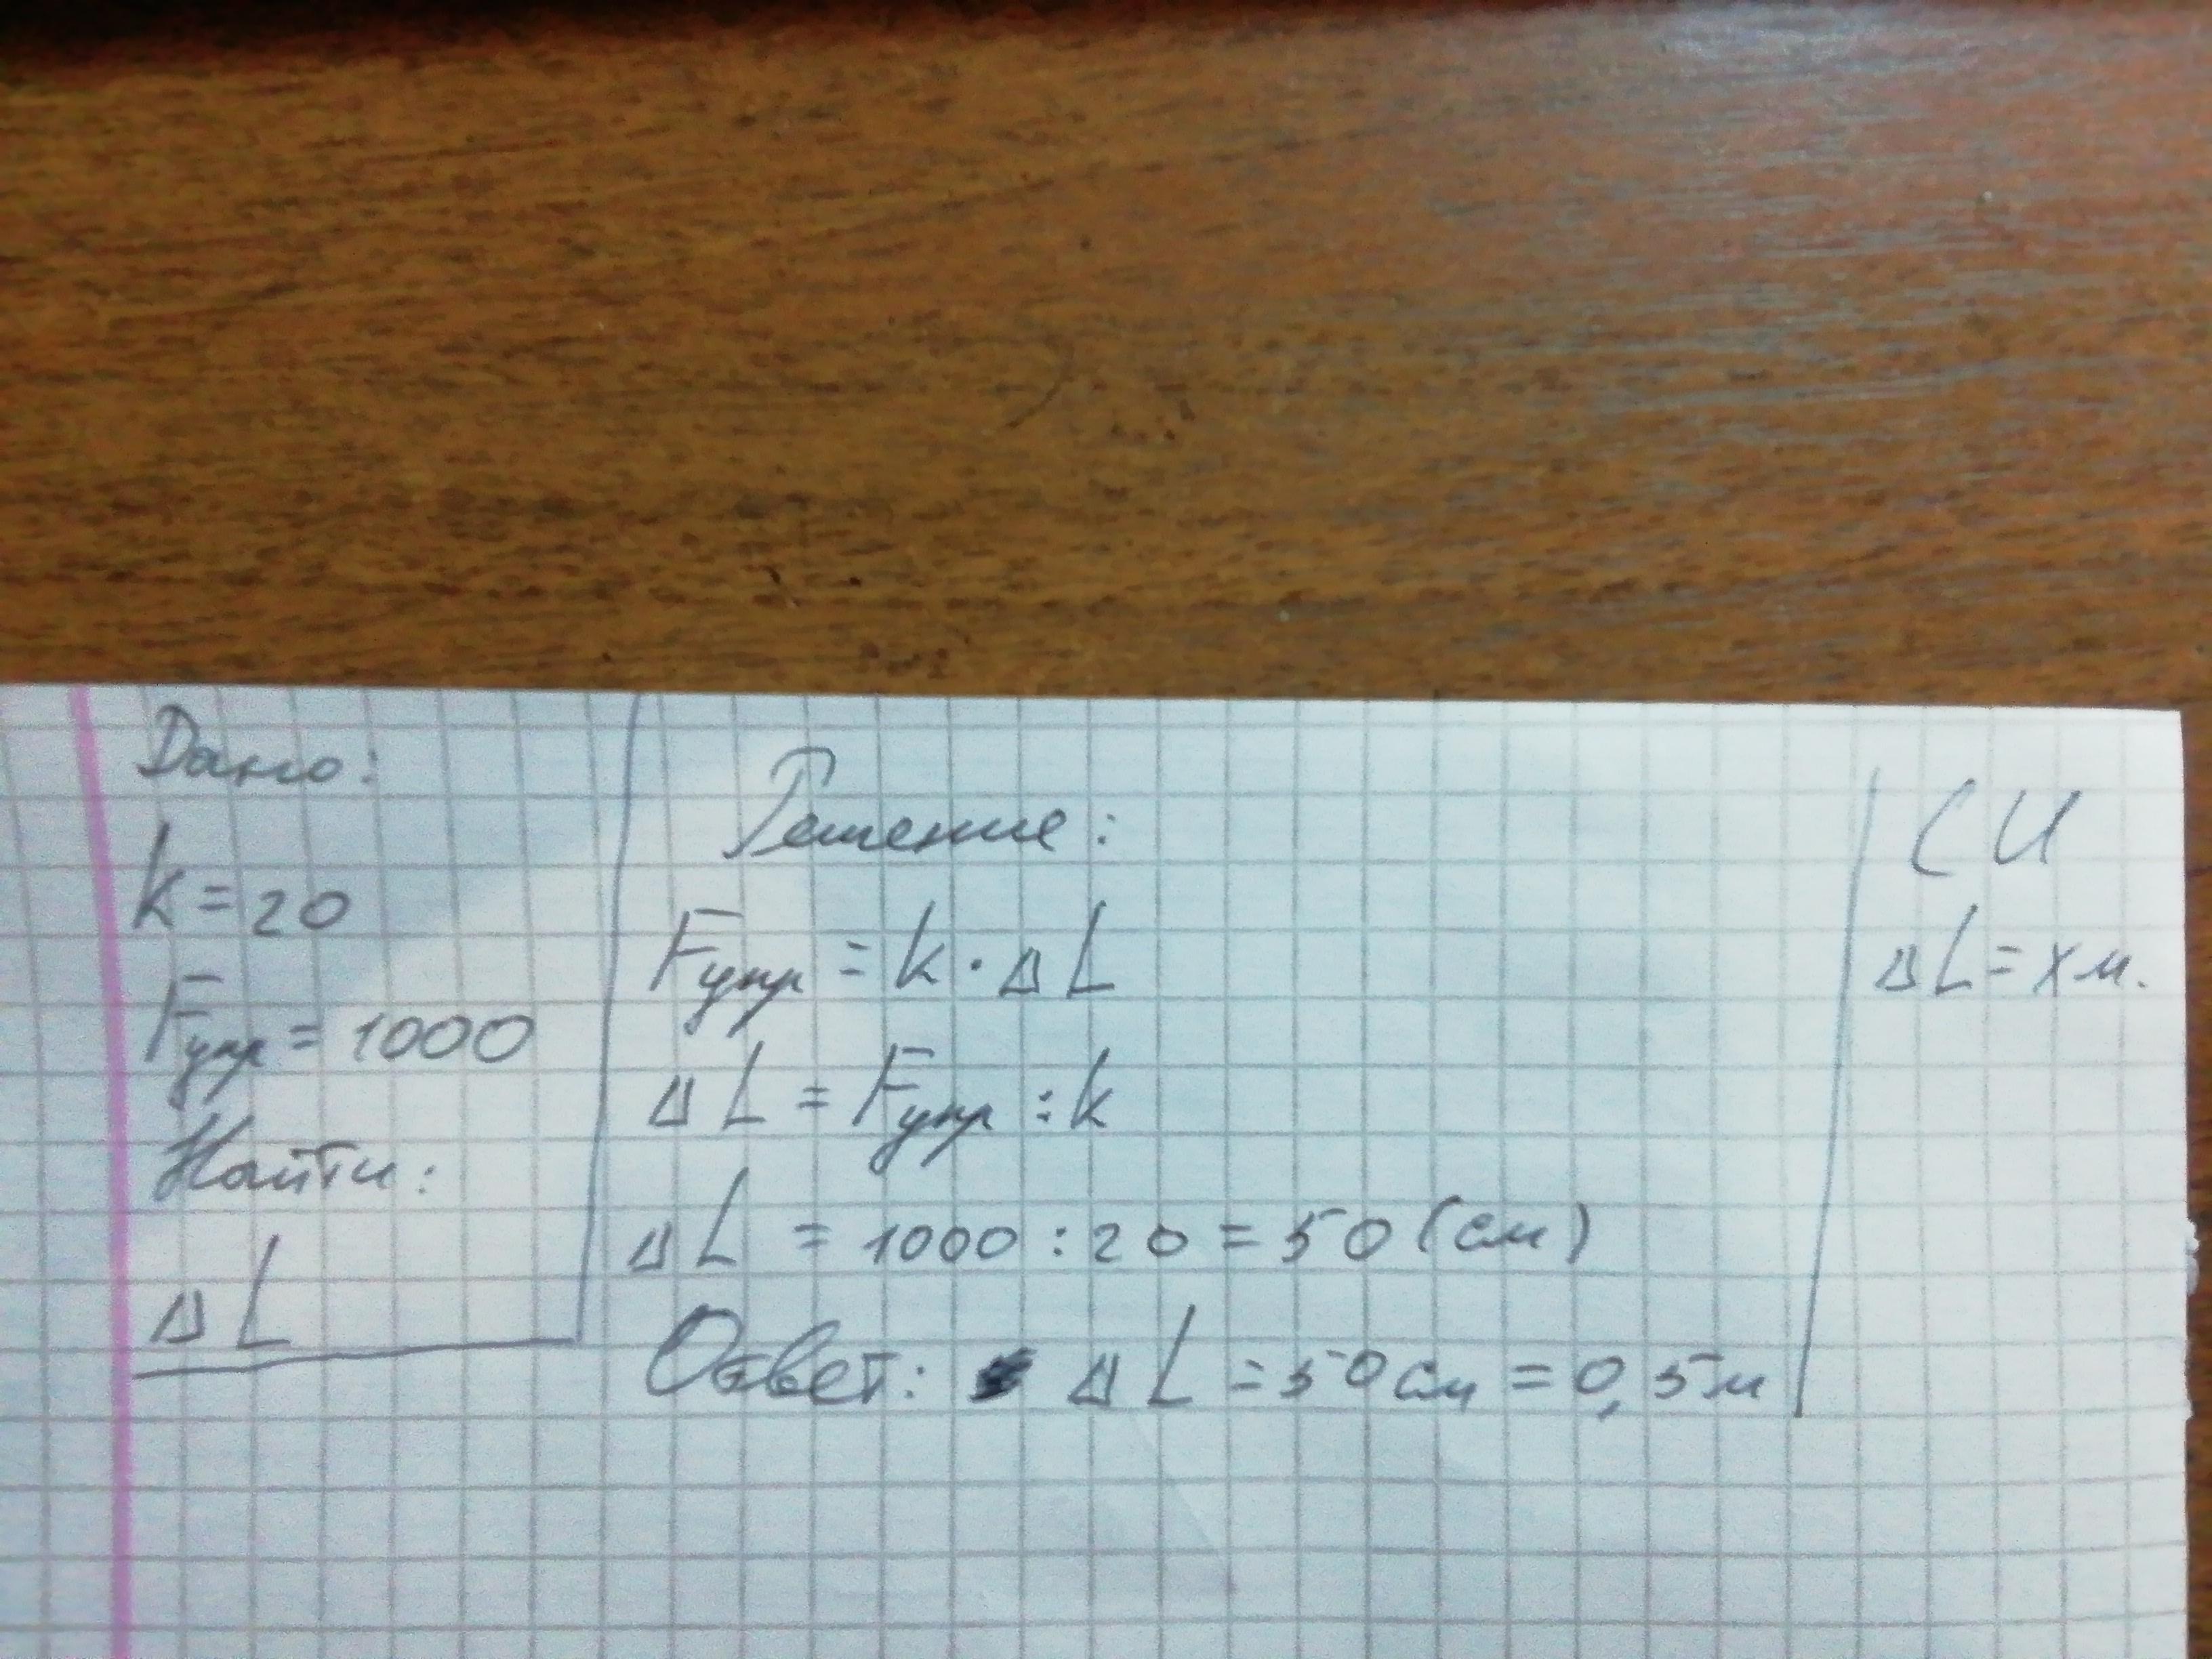 Дано:
k = 20
Fупр = 1000
Найти:
ΔL
Решение:
Fупр = k · ΔL
ΔL = Fупр : k
ΔL = 1000 : 20 = 50 (см)
Ответ: ΔL = 50 см = 0,5 м
СИ
ΔL = x м.